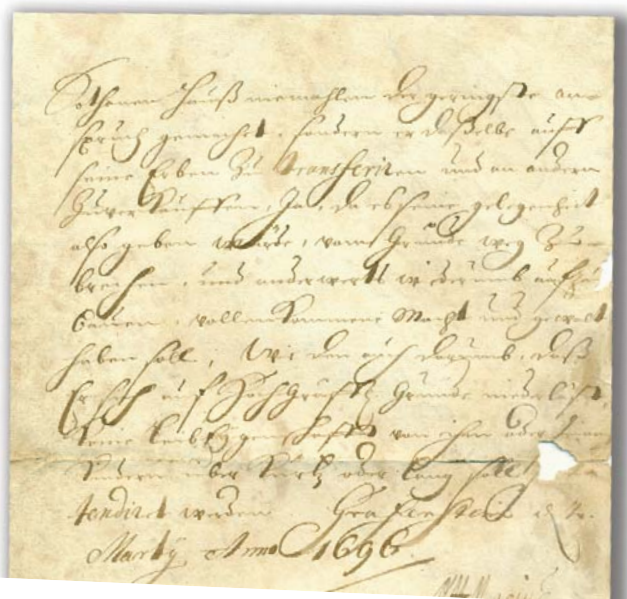 Sothanen Hauß niemahlen der geringste an-
spruch gemachet, sondern er daßelbe auff
seine Erben zu transferiren und an andern
zuverkauffen, Ja, da es seine gelegenheit
also geben würde, vom Grunde weg zu-
brechen, und anderwerts wiederumb auffzu
bauen, vollenkommene Macht und gewalt
haben soll, Wie den auch darumb, daß
Er sich auf Hochgräffl. Grunde niederläst,
keine Leibeigenschafft von ihm oder seinen
Kindern über kurtz oder lang soll
tendiret werden
Martij Anno 1696.